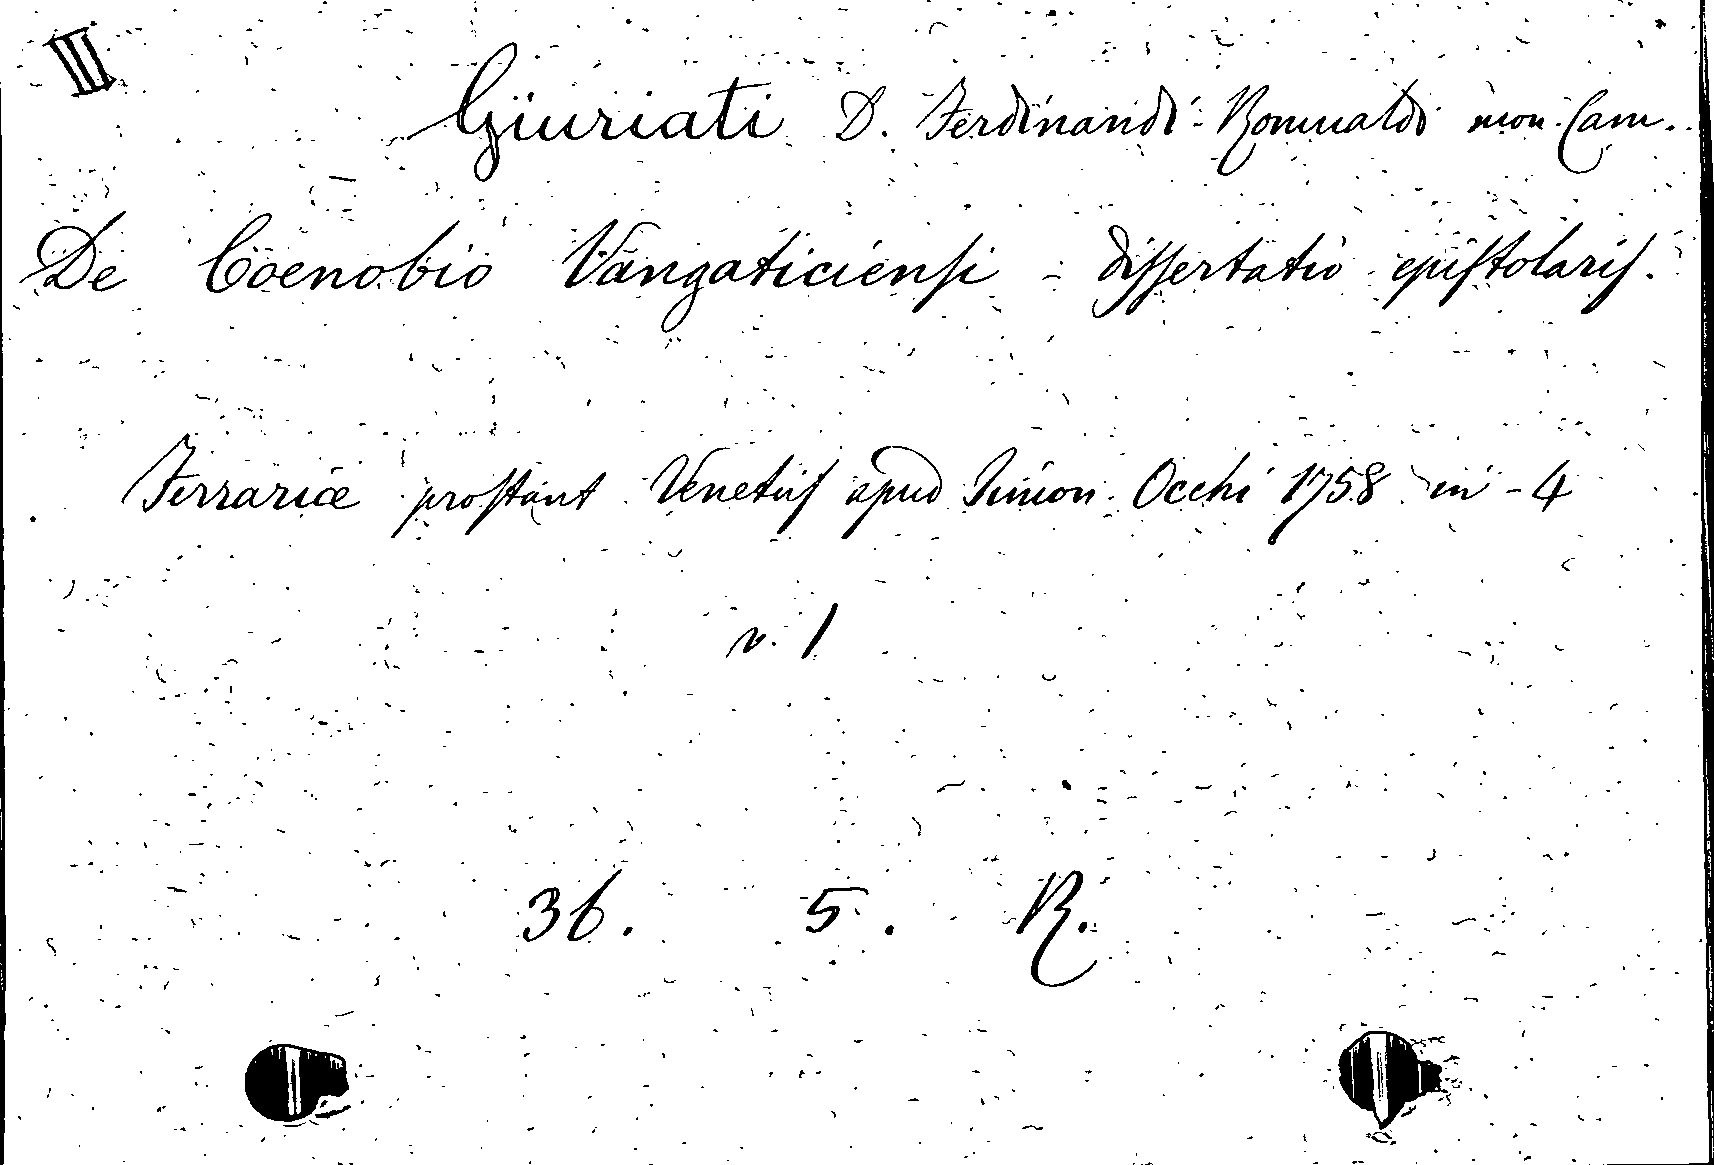 III
Giuriati D. Ferdinandi-Romualdi mon. Cam.
De Coenobio Vangaticiensi - dissertatio epistolaris.
Ferrariæ prostant Venetiis apud Simon. Occhi 1758 in-4
v. 1
36. 5. R.